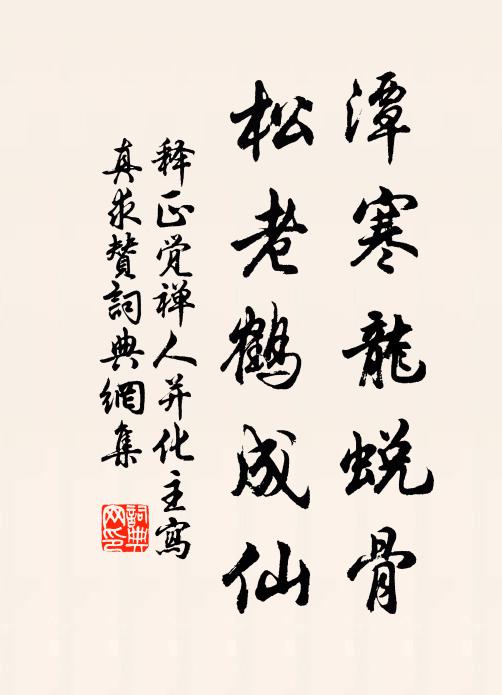 潭寒龍蜕骨
松老鹤成仙
释正觉禅人并化主寫
真求赞詞典網集
詞典网印